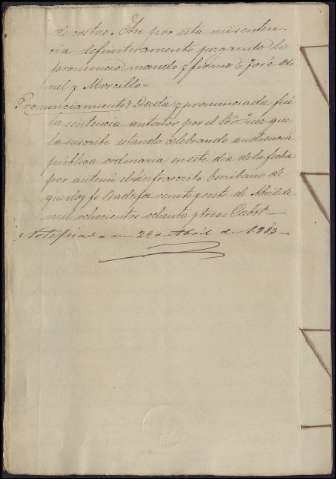 de costas. Así por esta mi senten-
cia definitivamente juzgando lo
pronuncio mando y firmo = José
y Morcillo.
Pronunciamiento = Dada y pronunciada fué
la sentencia anterior por el Sr. Juez que
la suscribe estando celebrando audiencia
pública ordinaria en este dia de la fecha
por antemi el infrascrito Escribano de
que doy fé veinte y siete de Abril de
mil ochocientos ochenta y tres
en 28 de Abril de 1883